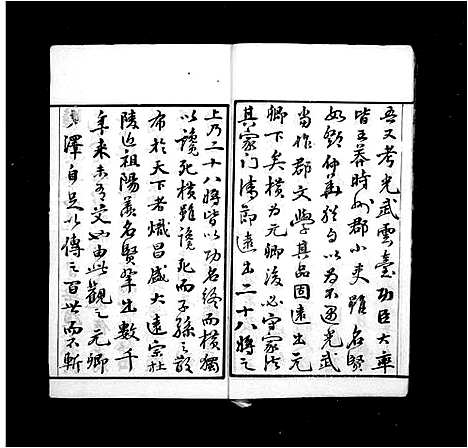 吾又考光武雲臺功臣大率
皆王莽時州郡小吏雖名賢
如鄧仲華猶自以為不遇光武
當作郡文學其品固遠出元
卿下矣橫為元卿後必守家法
其家門清節遠出二十八將之
上乃二十八將皆以功名終而橫獨
以讒死橫雖讒死而子孫之散
布於天下者熾昌盛大遠宗杜
陵近祖陽羨名賢輩出數千
年來未有艾也由此觀之元卿
澤自足以傳之百世而不斬